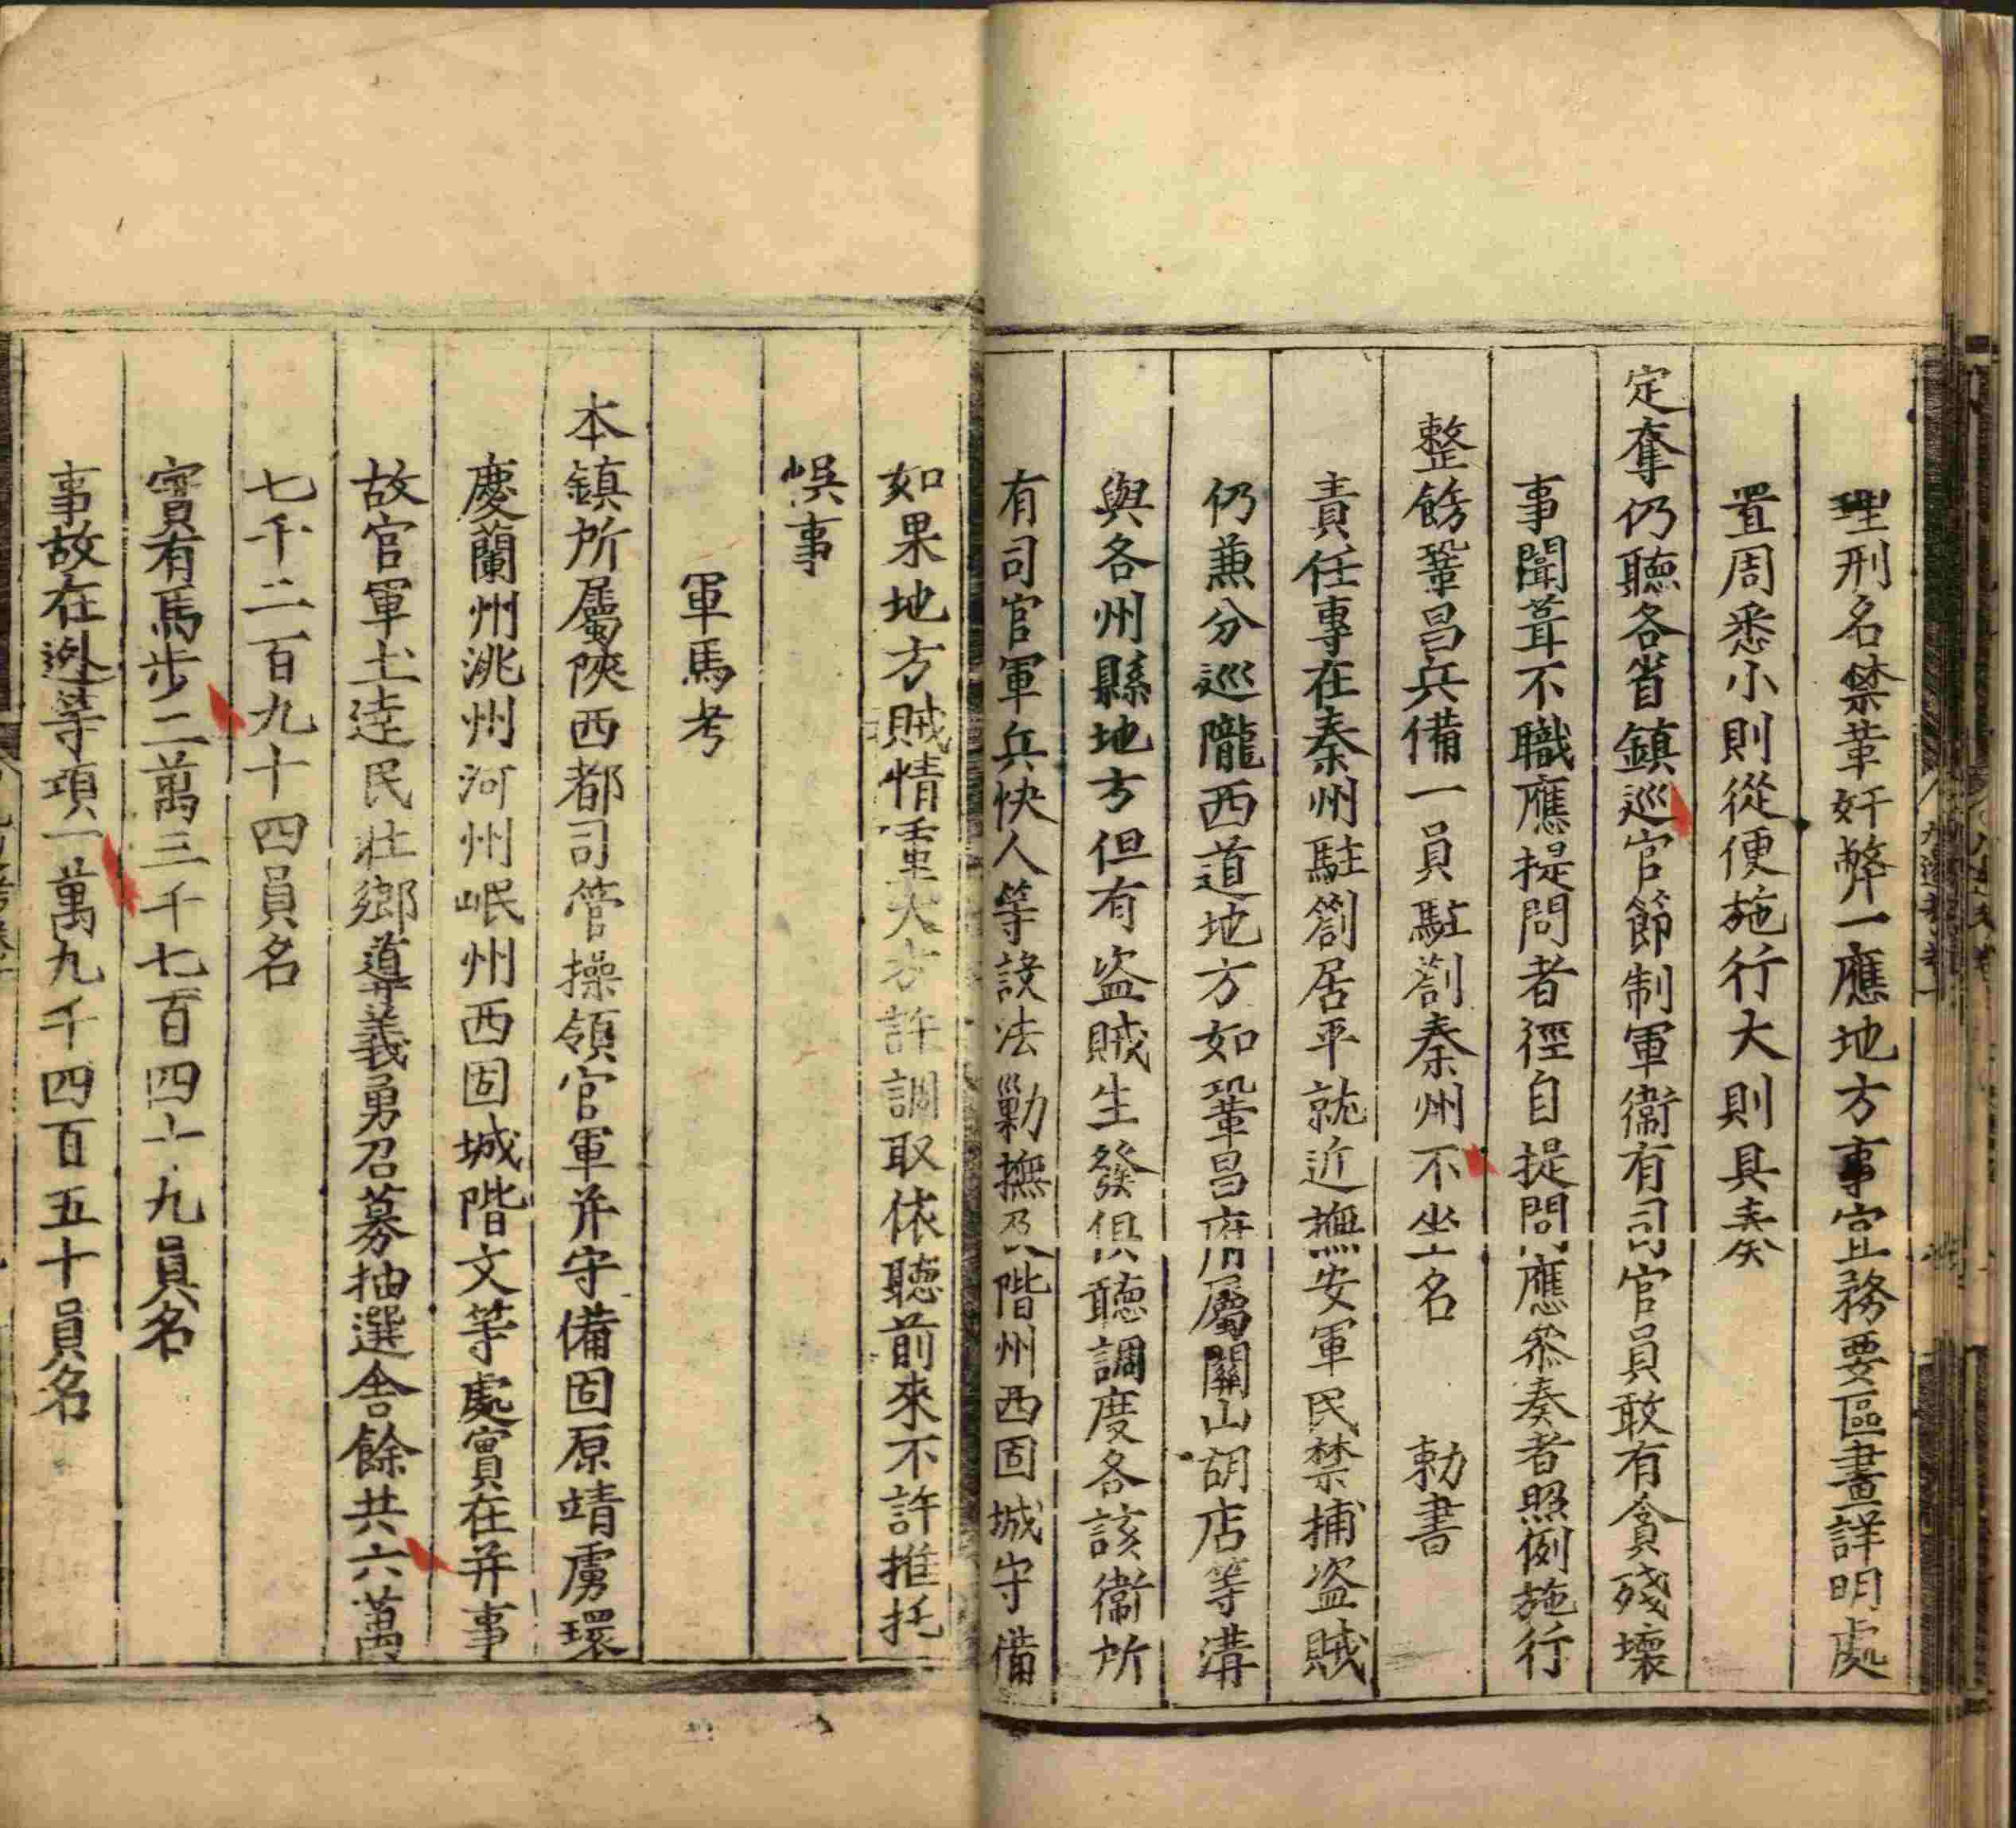 理刑名禁革奸弊一應地方事宜務要區畫詳明處
置周悉小則從便施行大則具奏
定奪仍聽各省鎮巡官節制軍衞有司官員敢有貪殘壞
事闒葺不職應提問者徑自提問應叅奏者照例施行
整飭鞏昌兵備一員駐劄秦州不坐名　勅書
責任專在秦州駐劄居平就近撫安軍民禁捕盗賊
仍兼分巡隴西道地方如鞏昌府屬關山胡店等溝
與各州縣地方但有盗賊生發俱聽調度各該衞所
有司官軍兵快人等設法勦撫及階州西固城守備
如果地方賊情重大方許調取依聽前來不許推托
悞事
軍馬考
本鎮所屬陝西都司管操領官軍并守備固原靖虜環
慶蘭州洮州河州岷州西固城階文等處實在并事
故官軍土達民壮鄉導義勇召募抽選舍餘共六萬
七千二百九十四員名
實有馬步二萬三千七百四十九員名
事故在逃等項一萬九千四百五十員名